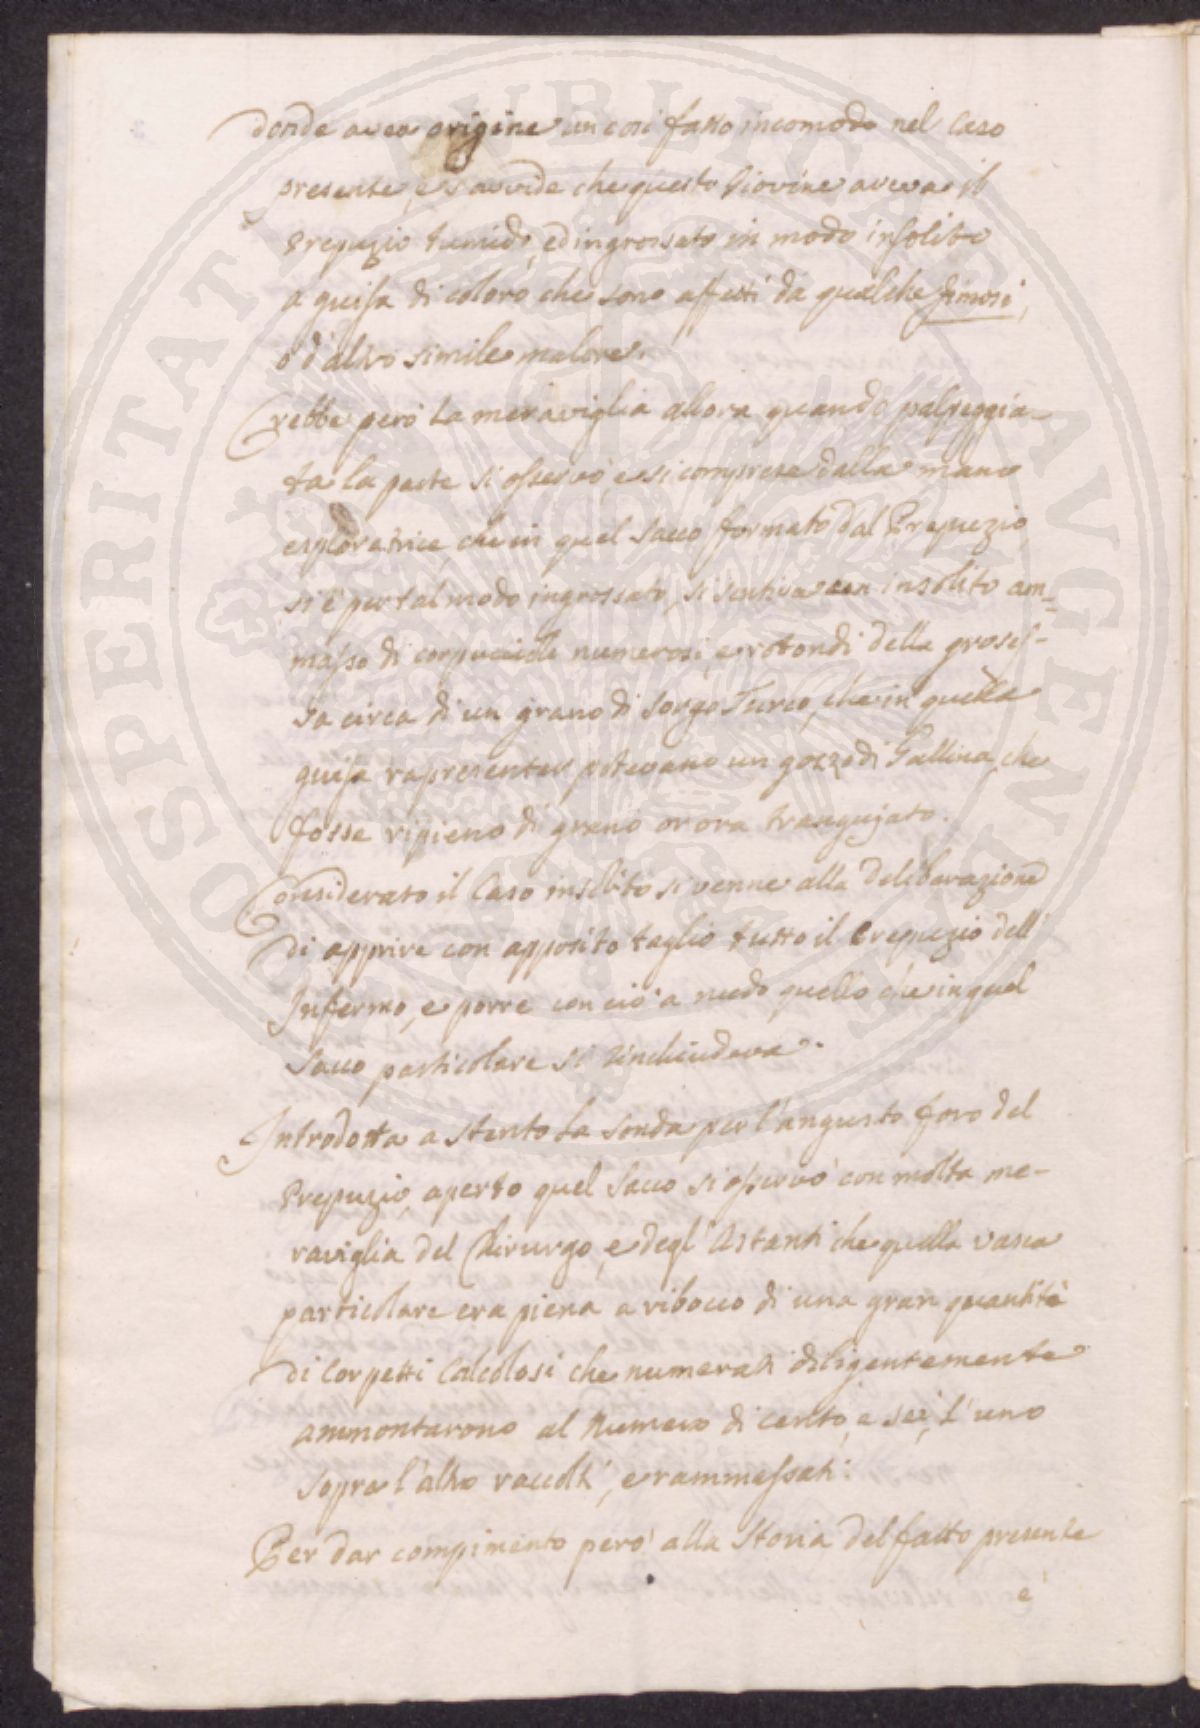 donde avea origine un così fatto incomodo nel Caso
presente, e s'avvide che questo Giovine aveva il
Prepuzio tumido, ed ingrossato in modo insolito
a guisa di coloro che sono affetti da qualche fimosi,
o d'altro simile malore.
Crebbe però la meraviglia allora quando palpeggia-
ta la parte si osservò, e si comprese dalla mano
esploratrice, che in quel Sacco formato dal Prepuzio
si è per tal modo ingrossato, si sentiva un insolito am=
masso di corpuccioli numerosi, e rotondi della grosses-
sa circa di un grano di Sorgo Turco, che in quella
guisa rapresentar potevano un gozzo di Gallina, che
fosse ripieno di grano or ora trangujato.
Considerato il Caso insolito si venne alla deliberazione
di apprire con apposito taglio tutto il Prepuzio dell'
Infermo, e porre con ciò a nudo quello che in quel
Sacco particolare si rinchiudeva.
Introdotta a stento la Sonda per l'angusto foro del
Prepuzio, aperto quel Sacco si osservò con molta me-
raviglia del Chirurgo, e degl'Astanti che quella vasca
particolare era piena a ribocco di una gran quantità
di Corpetti Calcolosi che numerati diligentemente
ammontarono al Numero di cento, e sei, l'uno
sopra l'altro raccolti, e rammassati.
Per dar compimento però alla Storia del fatto presente
è
PUBLICAE AVGENDAE PROSPERITATI